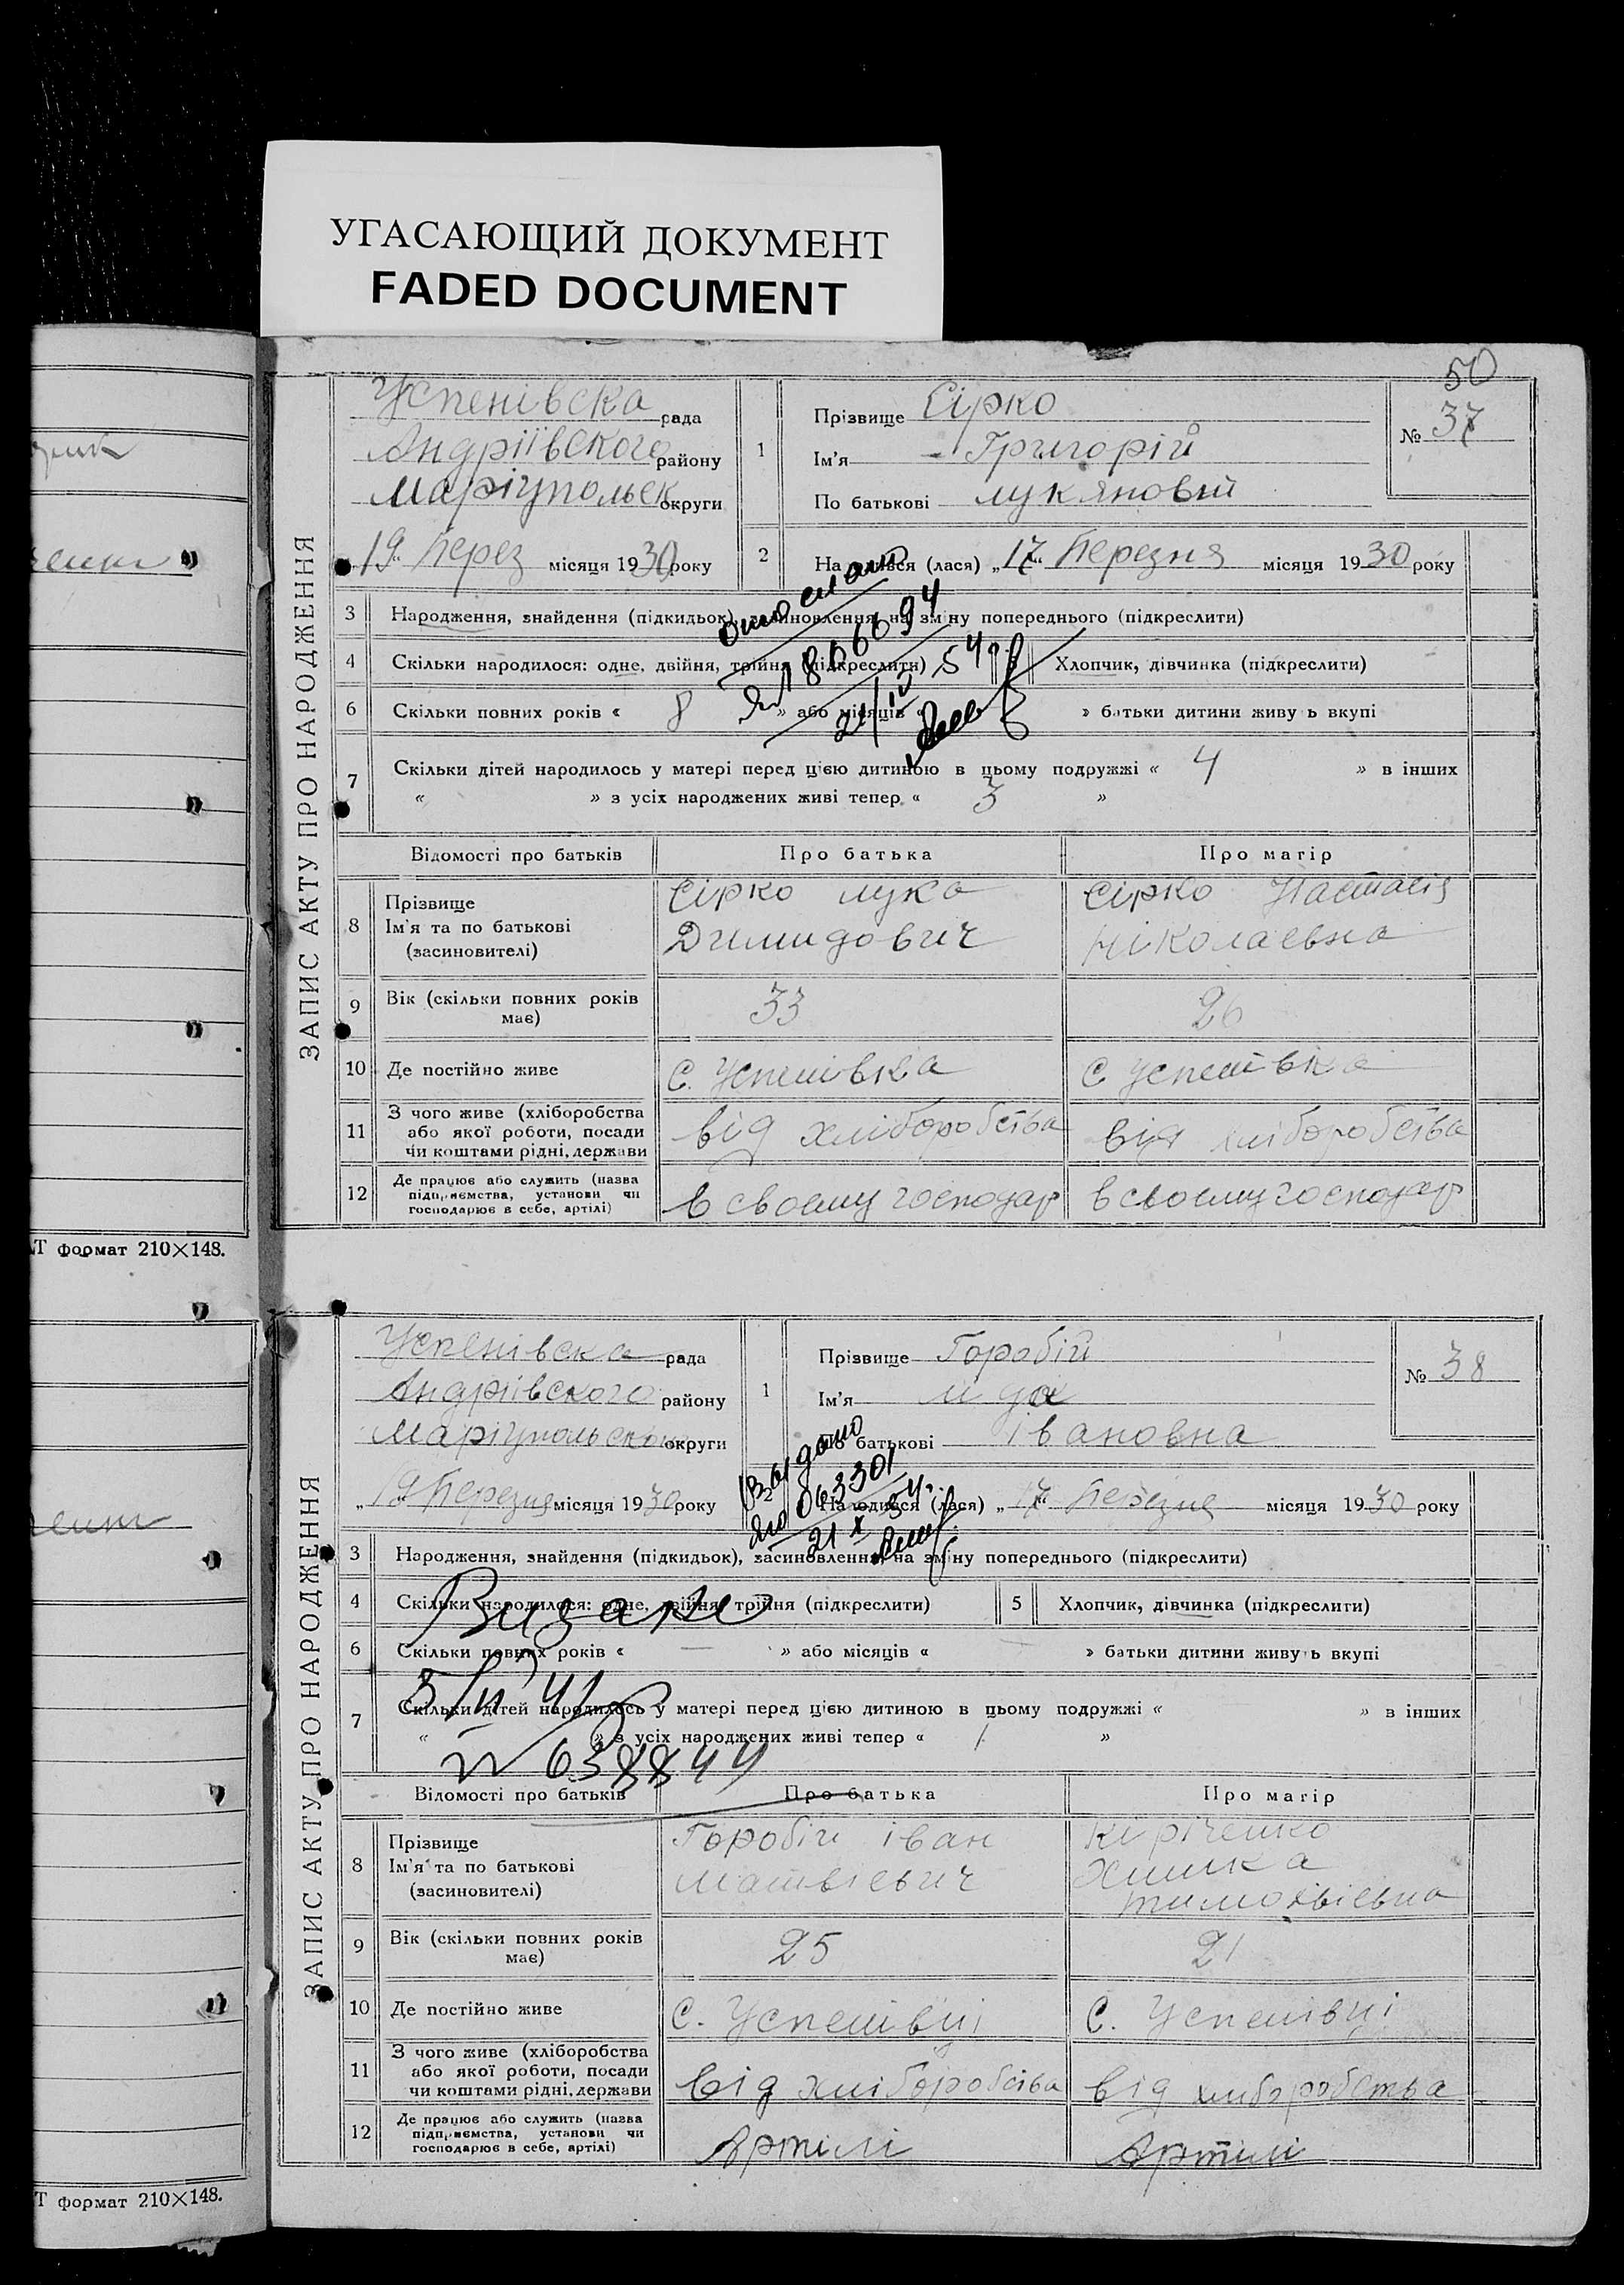 УГАСАЮЩИЙ ДОКУМЕНТ
FADED DOCUMENT
50
ЗАПИС АКТУ ПРО НАРОДЖЕННЯ
Успенівска рада
Андріївского району
Маріупольск округи
19 Берез місяця 1930 року
1
Прізвище Сірко
Ім'я Григорій
По батькові лукяновій
№ 37
2 На дився (лася) „17“ Березня місяця 1930 року
3 Народження, знайдення (підкидьок), засиновлення на зміну попереднього (підкреслити)
4 Скільки народилося: одне, двійня, трійня (підкреслити) 5 Хлопчик, дівчинка (підкреслити)
21/IV 54 р.
6 Скільки повних років « 8 » або місяців « » батьки дитини живу ь вкупі
7 Скільки дітей народилось у матері перед цією дитиною в цьому подружжі « 4 » в інших
« » з усіх народжених живі тепер « 3 »
Відомості про батьків Про батька Про матір
8 Прізвище
Ім'я та по батькові
(засиновителі)
Сірко лука
Димидович
Сірко Настасія
Ніколаевна
9 Вік (скільки повних років має) 33 26
10 Де постійно живе С. Успенівка С Успенівка
11 З чого живе (хліборобства
або якої роботи, посади
чи коштами рідні, держави
від хліборобства від хліборобства
12 Де працює або служить (назва
підприємства, установи чи
господарює в себе, артілі)
в своему господар в своему господар
Т формат 210×148.
ЗАПИС АКТУ ПРО НАРОДЖЕННЯ
Успенівска рада
Андріївского району
Маріупольского округи
„19“ Березня місяця 1930 року
1
Прізвище Горобій
Ім'я Ида
По батькові івановна
№ 38
Выдано
063301
21 X 54 г.
Народився (лася) „17“ Березня місяця 1930 року
3 Народження, знайдення (підкидьок), засиновлення на зміну попереднього (підкреслити)
4 Скільки народилося: одне, двійня, трійня (підкреслити) 5 Хлопчик, дівчинка (підкреслити)
Видано
6 Скільки повних років « — » або місяців « — » батьки дитини живу ь вкупі
7 Скільки дітей народилось у матері перед цією дитиною в цьому подружжі « » в інших
« » з усіх народжених живі тепер « 1 »
№ 638844
Відомості про батьків Про батька Про матір
8 Прізвище
Ім'я та по батькові
(засиновителі)
Горобій іван
Матвієвич
Кіріченко
Химка
тимохвієвна
9 Вік (скільки повних років має) 25 21
10 Де постійно живе С. Успенівці С. Успенівці
11 З чого живе (хліборобства
або якої роботи, посади
чи коштами рідні, держави
від хліборобства від хліборобства
12 Де працює або служить (назва
підприємства, установи чи
господарює в себе, артілі)
Артілі Артілі
Т формат 210×148.